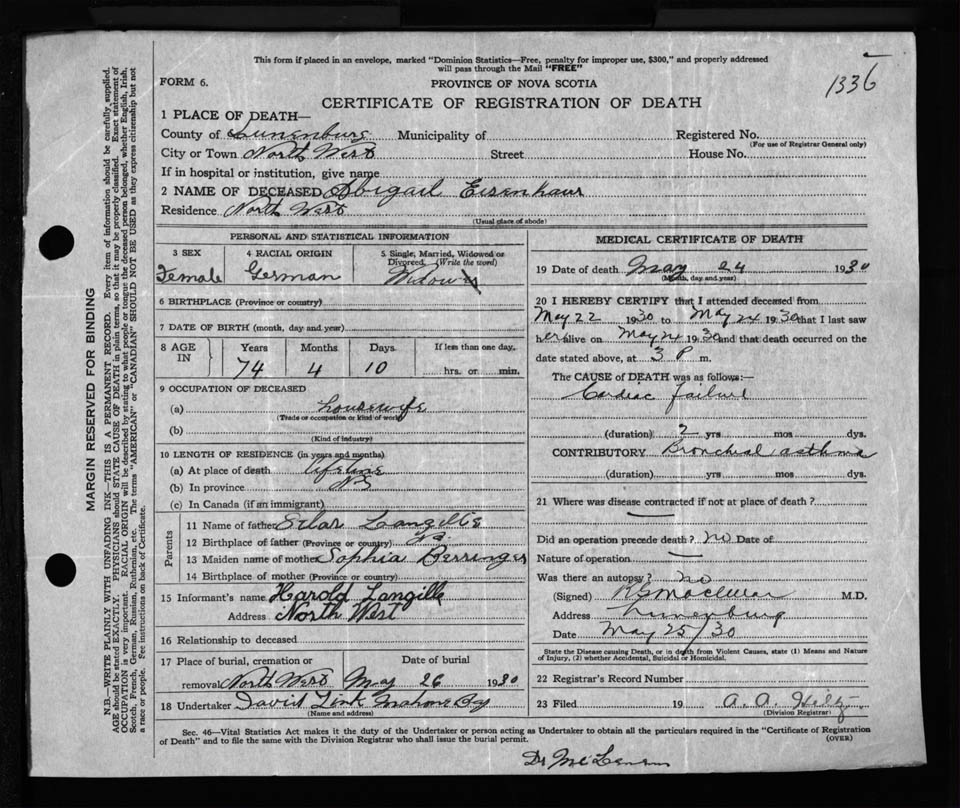 This form if placed in an envelope, marked "Dominion Statistics—Free, penalty for improper use, $300," and properly addressed
will pass through the Mail "FREE"
1336
FORM 6.
PROVINCE OF NOVA SCOTIA
CERTIFICATE OF REGISTRATION OF DEATH
1 PLACE OF DEATH—
County of Lunenburg Municipality of Registered No.
(For use of Registrar General only)
City or Town North West Street House No.
If in hospital or institution, give name
2 NAME OF DECEASED Abigail Eisenhaur
Residence North West
(Usual place of abode)
PERSONAL AND STATISTICAL INFORMATION
3 SEX 4 RACIAL ORIGIN 5 Single, Married, Widowed or
Divorced. (Write the word)
Female German Widow
6 BIRTHPLACE (Province or country)
7 DATE OF BIRTH (month, day and year)
8 AGE IN Years Months Days If less than one day,
74 4 10 hrs. or min.
9 OCCUPATION OF DECEASED
(a) housewife
(Trade or occupation or kind of work)
(b)
(Kind of industry)
10 LENGTH OF RESIDENCE (in years and months)
(a) At place of death lifetime
(b) In province NS
(c) In Canada (if an immigrant)
Parents
11 Name of father Langille
12 Birthplace of father (Province or country)
13 Maiden name of mother Sophia Berringer
14 Birthplace of mother (Province or country)
15 Informant's name Harold Langille
Address North West
16 Relationship to deceased
17 Place of burial, cremation or Date of burial
removal North West May 26 1930
18 Undertaker David Mahone Bay
(Name and address)
MEDICAL CERTIFICATE OF DEATH
19 Date of death May 24 1930
(Month, day and year)
20 I HEREBY CERTIFY that I attended deceased from
May 22 1930 to May 24 1930 that I last saw
her alive on May 24 1930 and that death occurred on the
date stated above, at 3 P m.
The CAUSE of DEATH was as follows:—
Cardiac failure
(duration) 2 yrs mos dys.
CONTRIBUTORY Bronchial asthma
(duration) yrs. mos. dys.
21 Where was disease contracted if not at place of death?
Did an operation precede death? no Date of
Nature of operation —
Was there an autopsy? no
(Signed) M.D.
Address Lunenburg
Date May 25/30
State the Disease causing Death, or in death from Violent Causes, state (1) Means and Nature
of Injury, (2) whether Accidental, Suicidal or Homicidal.
22 Registrar's Record Number
23 Filed 19 A. A.
(Division Registrar)
Sec. 46—Vital Statistics Act makes it the duty of the Undertaker or person acting as Undertaker to obtain all the particulars required in the "Certificate of Registration
of Death" and to file the same with the Division Registrar who shall issue the burial permit. (OVER)
Dr
MARGIN RESERVED FOR BINDING
N.B.—WRITE PLAINLY WITH UNFADING INK—THIS IS A PERMANENT RECORD. Every item of information should be carefully supplied.
AGE should be stated EXACTLY. PHYSICIANS should STATE CAUSE OF DEATH in plain terms, so that it may be properly classified. Exact statement of
OCCUPATION is very important. RACIAL ORIGIN will be described by stating to what people or tongue the deceased person belonged, whether English, Irish,
Scotch, French, German, Russian, Ruthenian, etc. The terms "AMERICAN" or "CANADIAN" SHOULD NOT BE USED as they express citizenship but not
a race or people. See instructions on back of Certificate.